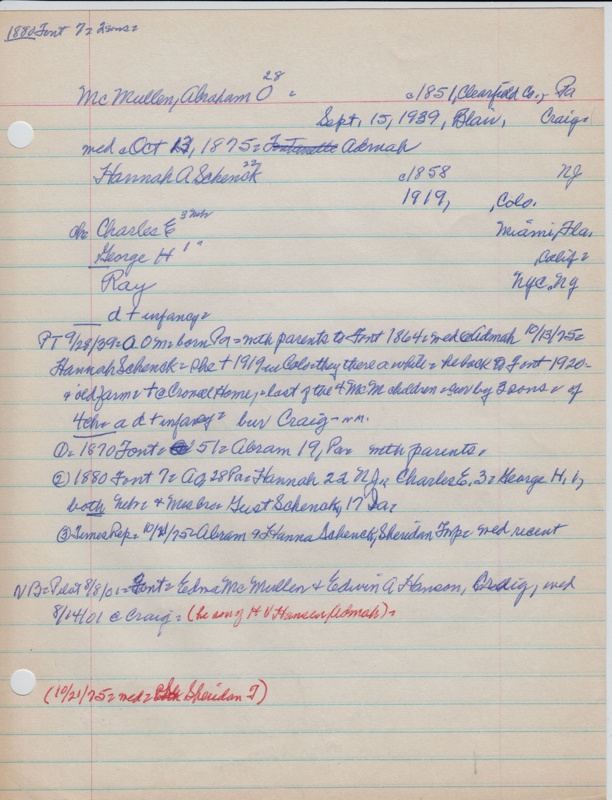 1880 Font 7= 2 sons=
Mc Mullen, Abraham O 28 = c1851, Clearfield Co., Pa
Sept, 15, 1939, Blair, Craig=
med c Oct 13, 1875= Admah
Hannah A Schenck 22 c1858 NJ
1919, , Colo.
ch= Charles E 3 Nebr Miami, Fla,
George H 1 " , Calif=
Ray NYC, NY
d + infancy=
PT 9/28/39= A O M= born Pa= with parents to Font 1864= med @ Admah 10/13/75=
Hannah Schenck= she + 1919 in Colo= they there a while= he back to Font 1920=
old farm= + @ Crowell Home,= last of the 4 McM children= surv by 3 sons= of
4 ch= a d + infancy= bur Craig=
①= 1870 Font= 51= Abram 19, Pa= with parents,
② 1880 Font 7= A O, 28 Pa= Hannah 22 NJ, Charles E, 3= George H, 1,
both Nebr= & Mrs bro= Gust Schenck, 17 Ia=
③ Times Rep= 10/21/75= Abram & Hanna Schenck, Sheridan Twp= med recent
NB= Pilot 8/8/01= Font= Edna Mc Mullen & Edwin A Hanson, Craig, med
8/14/01 @ Craig= (he son of H V Hansen, Admah)=
(10/21/75= med= Sheridan T)